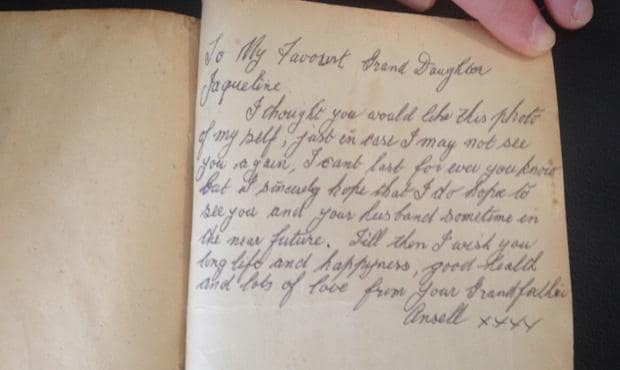 To My Favoret Grand Daughter
Jaqueline
I thought you would like this photo
of my self, just in case I may not see
you again, I cant last for ever you know
but I sincerely hope that I do hope to
see you and your husband sometime in
the near future. Till then I wish you
long life and happyness, good health
and lots of love from your Grandfather
Ansell xxxx